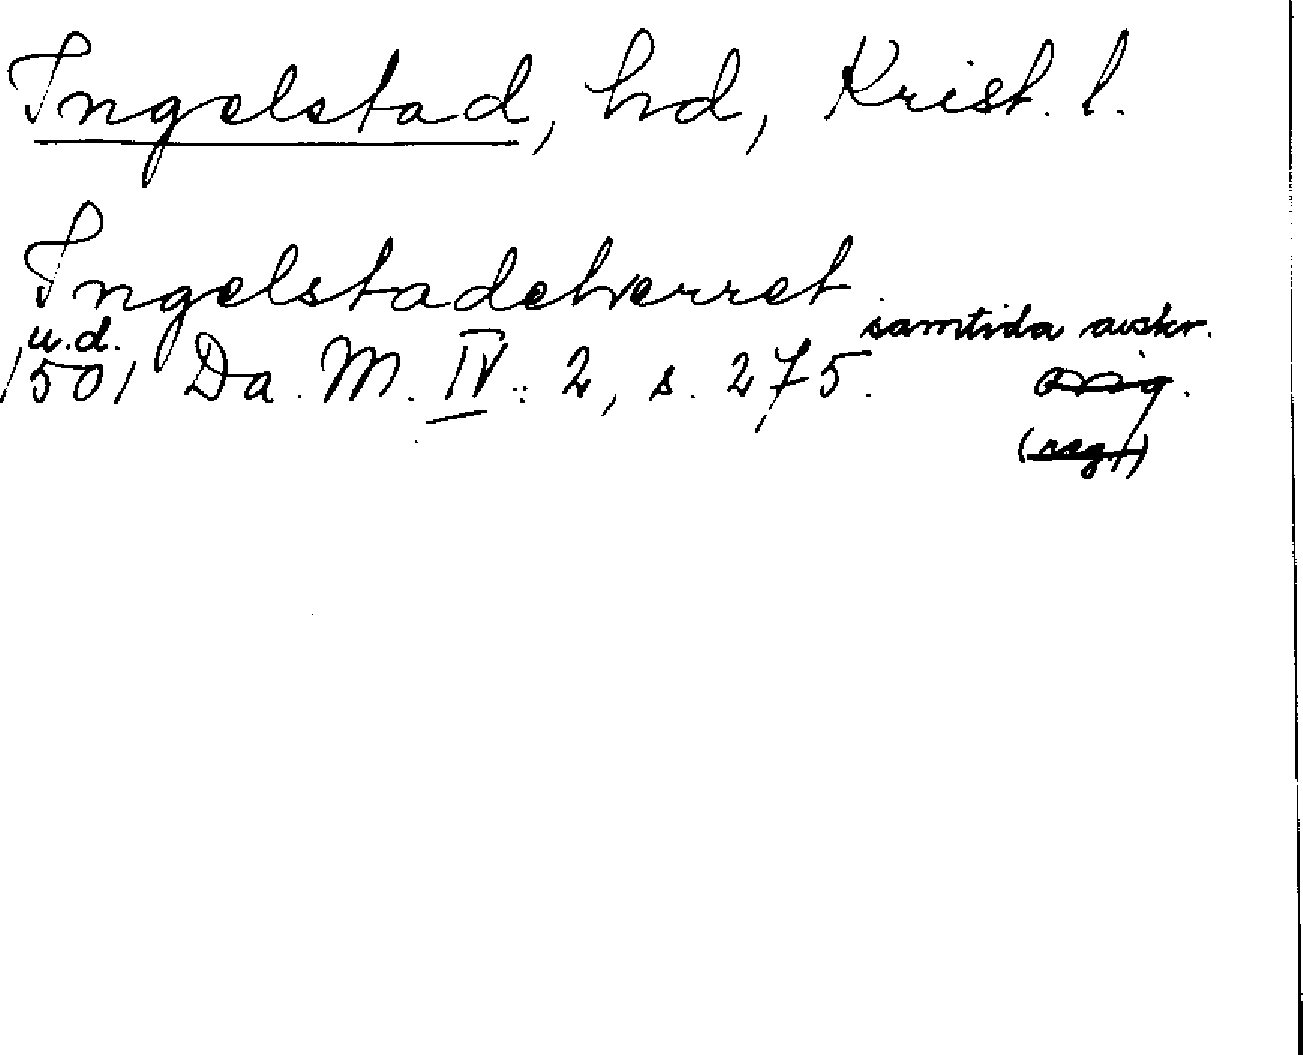 Ingelstad, hd, Krist. l.
Ingelstadeherret
u.d. samtida avskr.
1501 Da. M. IV: 2, s. 275. orig.